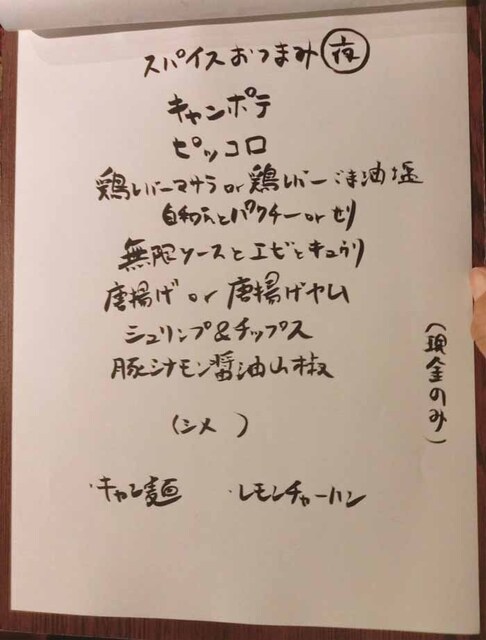 スパイスおつまみ 夜
キャンポテ
ピッコロ
鶏レバーマサラ or 鶏レバーごま油塩
自和えとパクチー or セリ
無限ソースとエビとキュウリ
唐揚げ or 唐揚げヤム
シュリンプ&チップス
豚シナモン醤油山椒
(現金のみ)
(シメ )
・キャン麺 ・レモンチャーハン